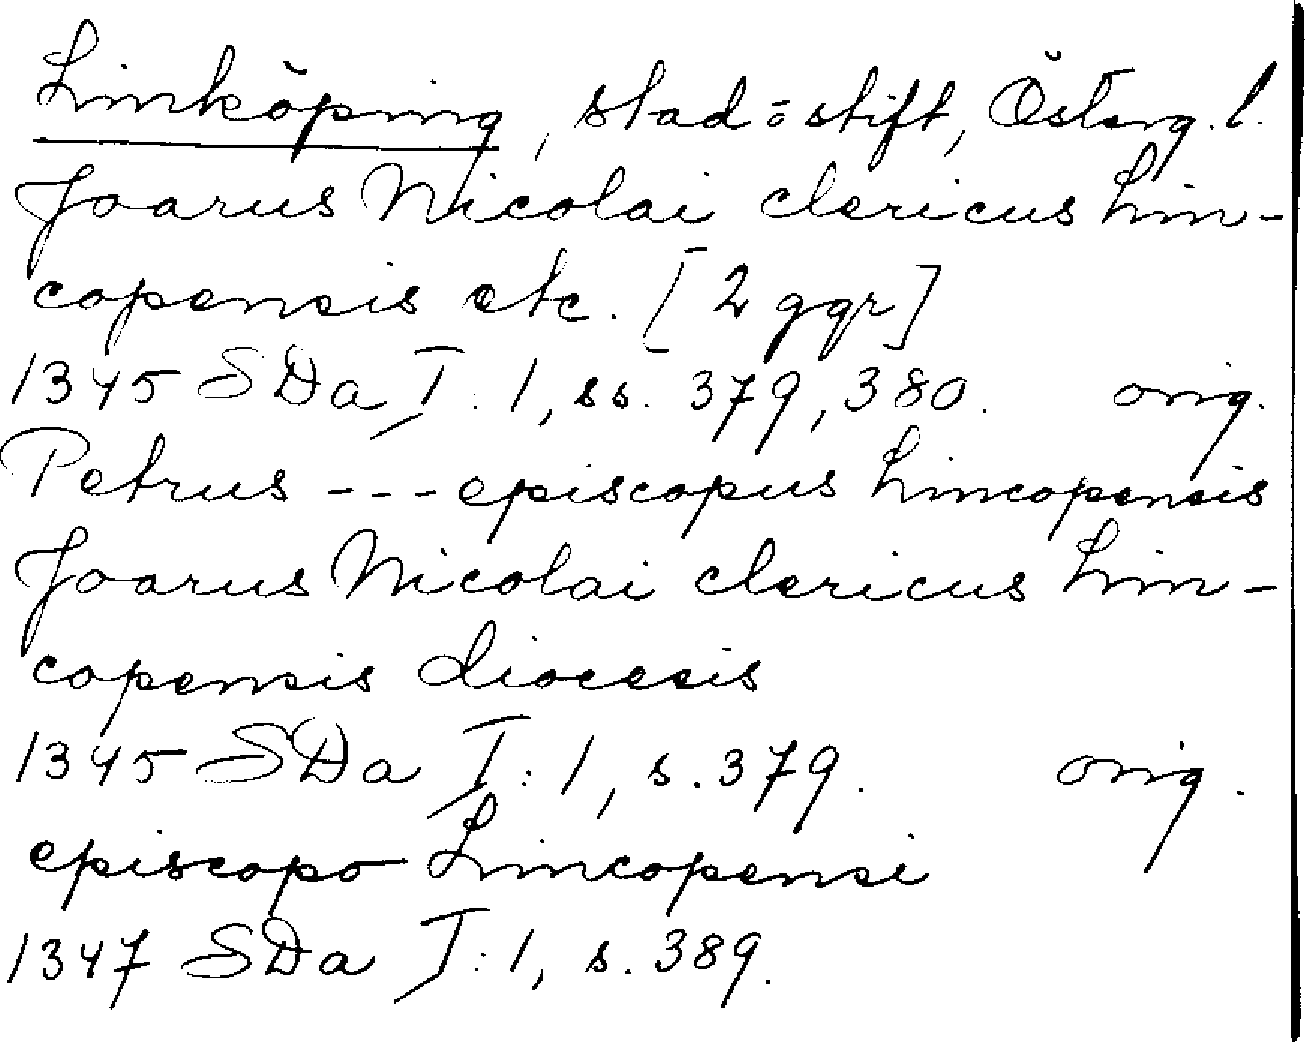 Linköping, stad o stift, Österg. l.
Joarus Nicolai clericus Lin-
copensis etc. [2 ggr]
1345 SDa I:1, ss. 379, 380. orig.
Petrus --- episcopus Lincopensis
Joarus Nicolai clericus Lin-
copensis diocesis
1345 SDa I:1, s. 379. orig.
episcopo Lincopensi
1347 SDa I:1, s. 389.